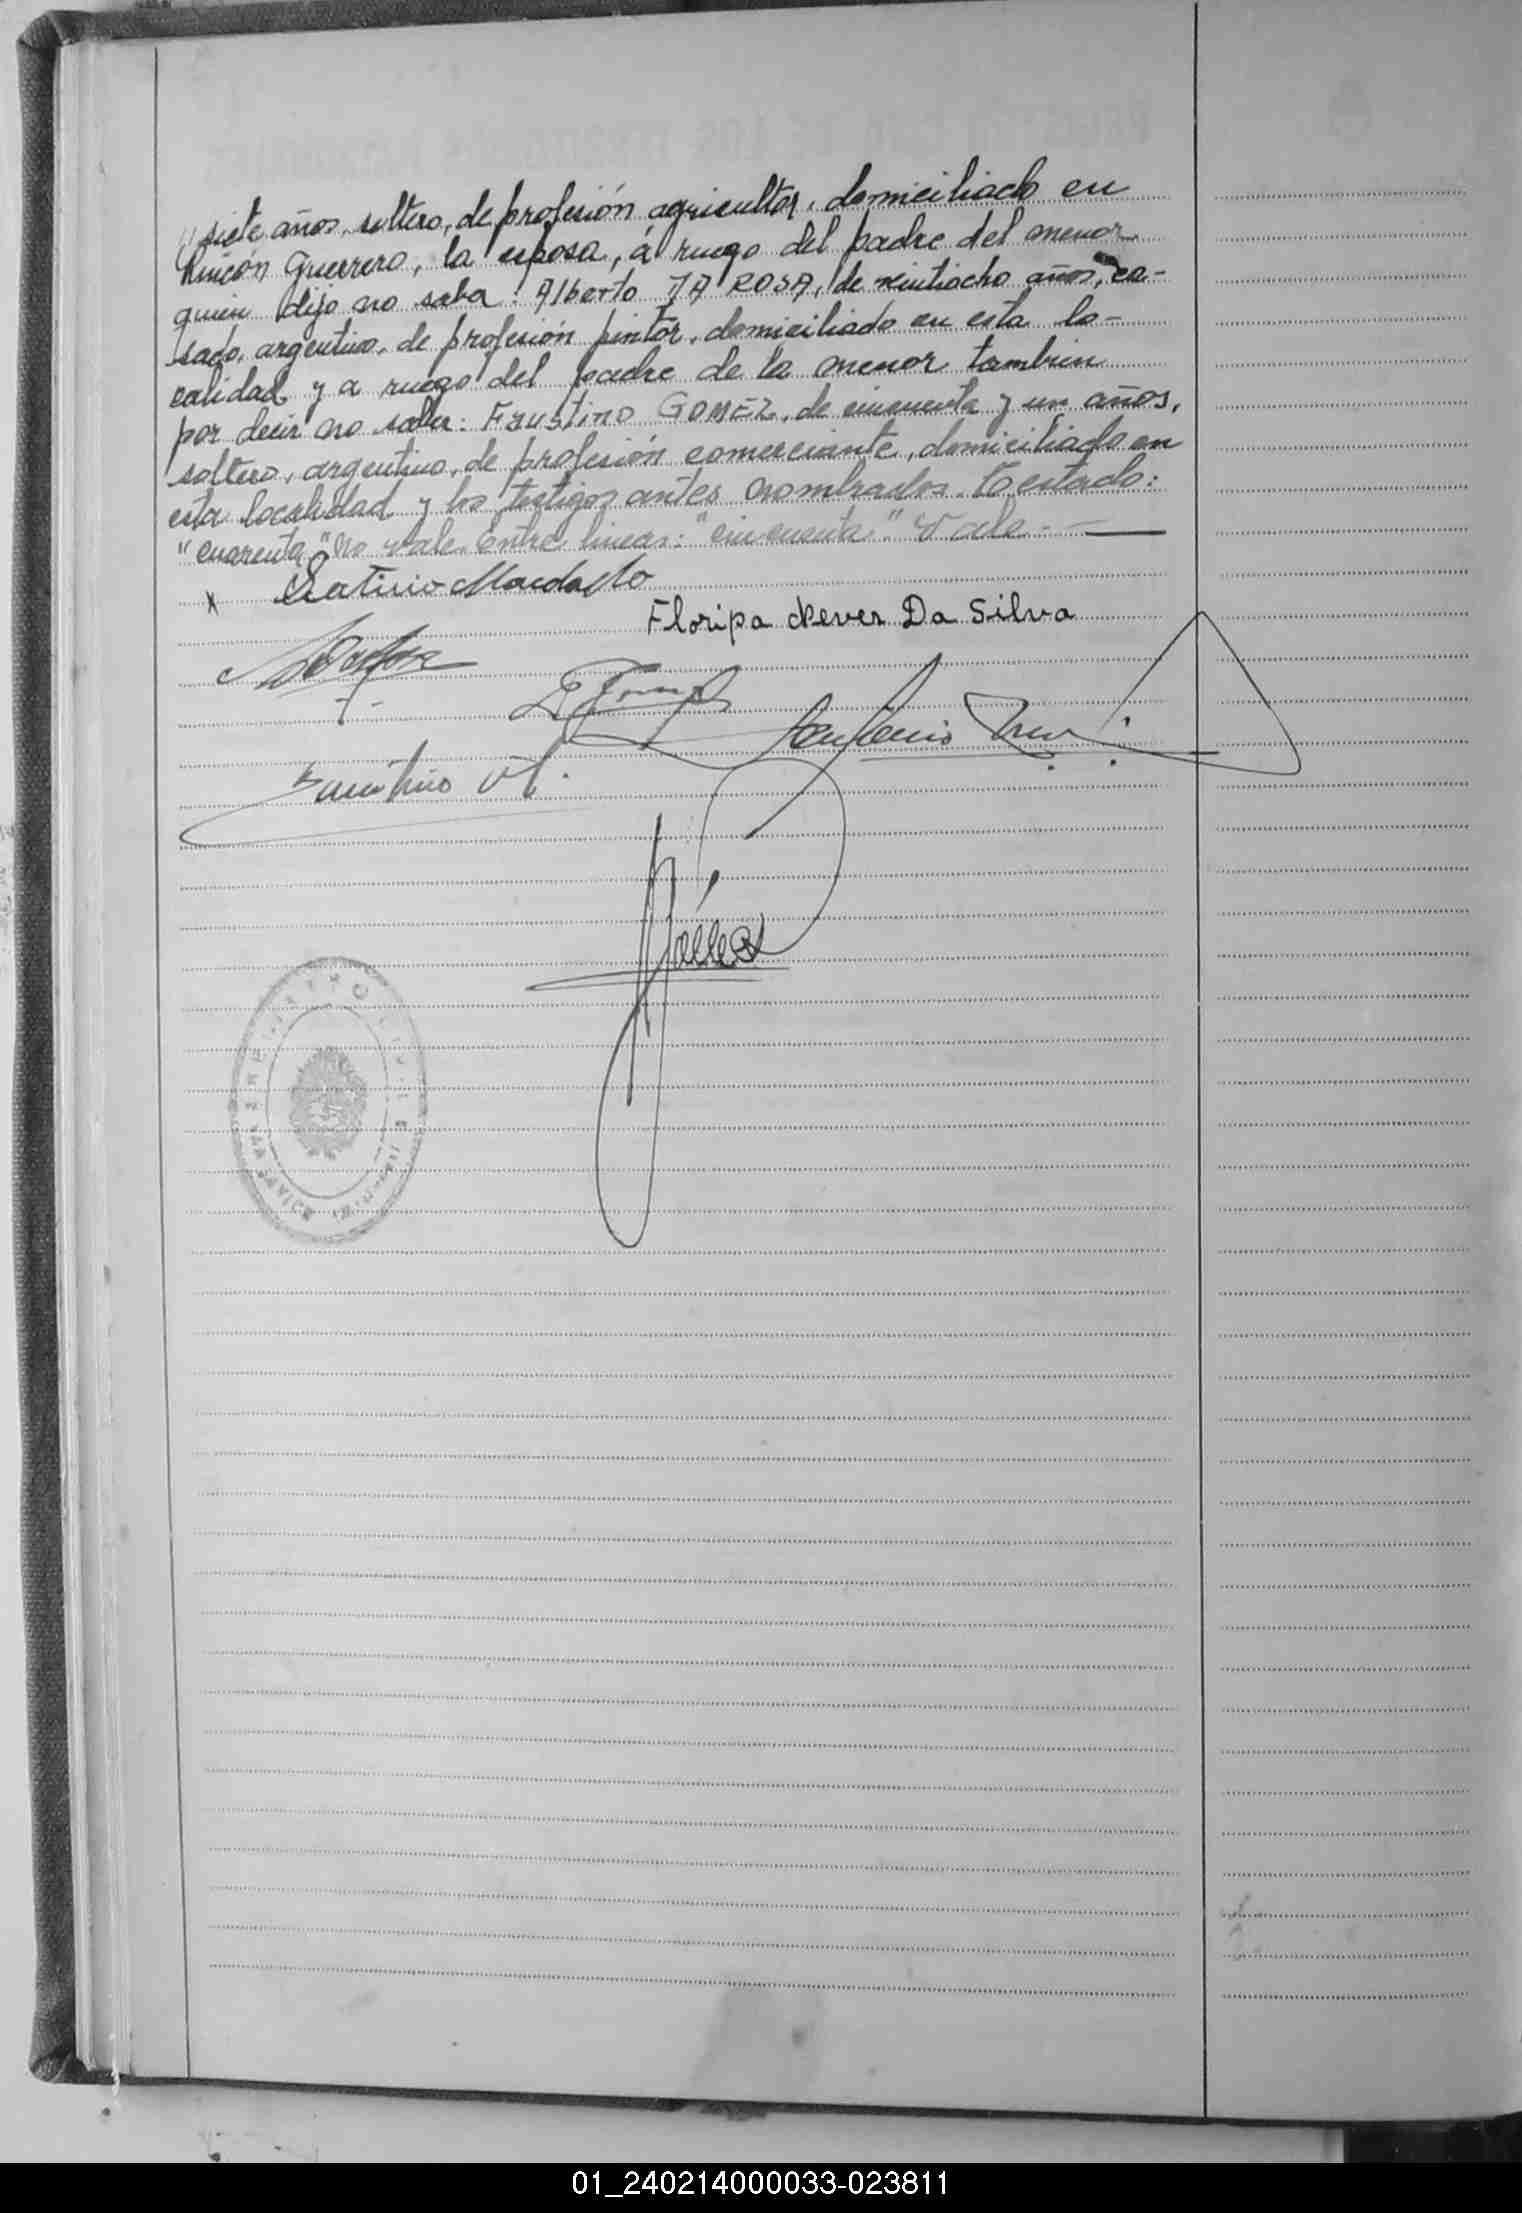 siete años, soltero, de profesión agricultor, domiciliado en
Rincón Guerrero, la esposa, á ruego del padre del menor
quien dijo no saber: Alberto DA ROSA, de veintiocho años, ca-
sado, argentino, de profesión pintor, domiciliado en esta lo-
calidad y a ruego del padre de la menor tambien
por decir no saber: Faustino GOMEZ, de cincuenta y un años,
soltero, argentino, de profesión comerciante, domiciliado en
esta localidad y los testigos antes nombrados. Testado:
"cuarenta" no vale. Entre lineas: "cincuenta". Vale.-
x
Floripa Never Da Silva
Antonio
REGISTRO CIVIL
01_240214000033-023811